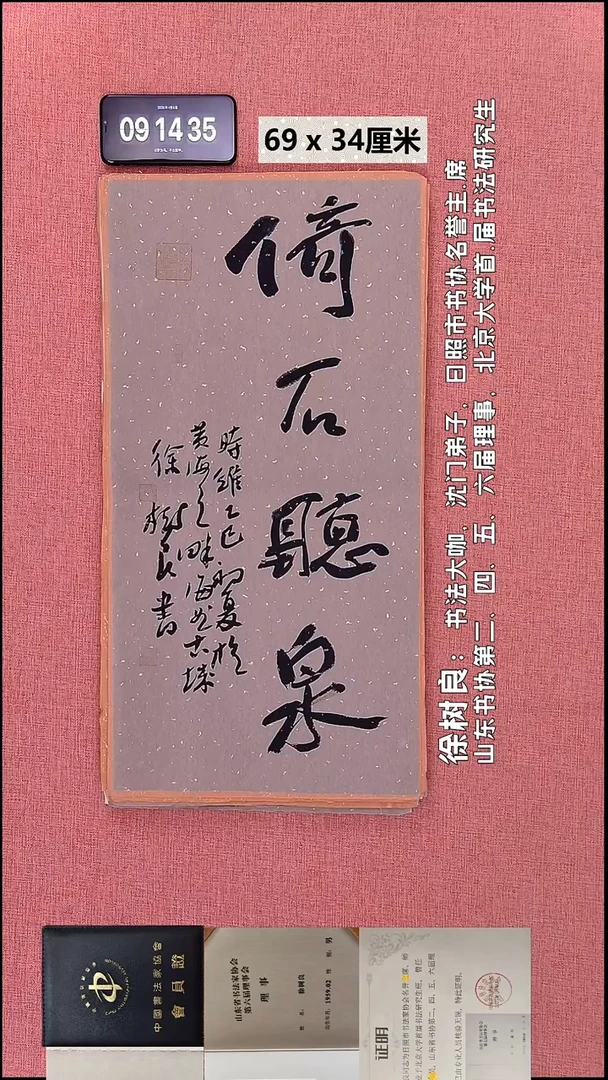 09 14 35
69 x 34厘米
倚石聽泉
時維乙巳初夏於
黄海之畔海曲古城
徐樹良書
徐树良：书法大咖，沈门弟子，日照市书协名誉主.席
山东书协第二、四、五、六届理事，北京大学首.届书法研究生
中國書法家協會
會員證
山东省书法家协会
第六届理事会
理事
徐树良
男
1959.02
证明